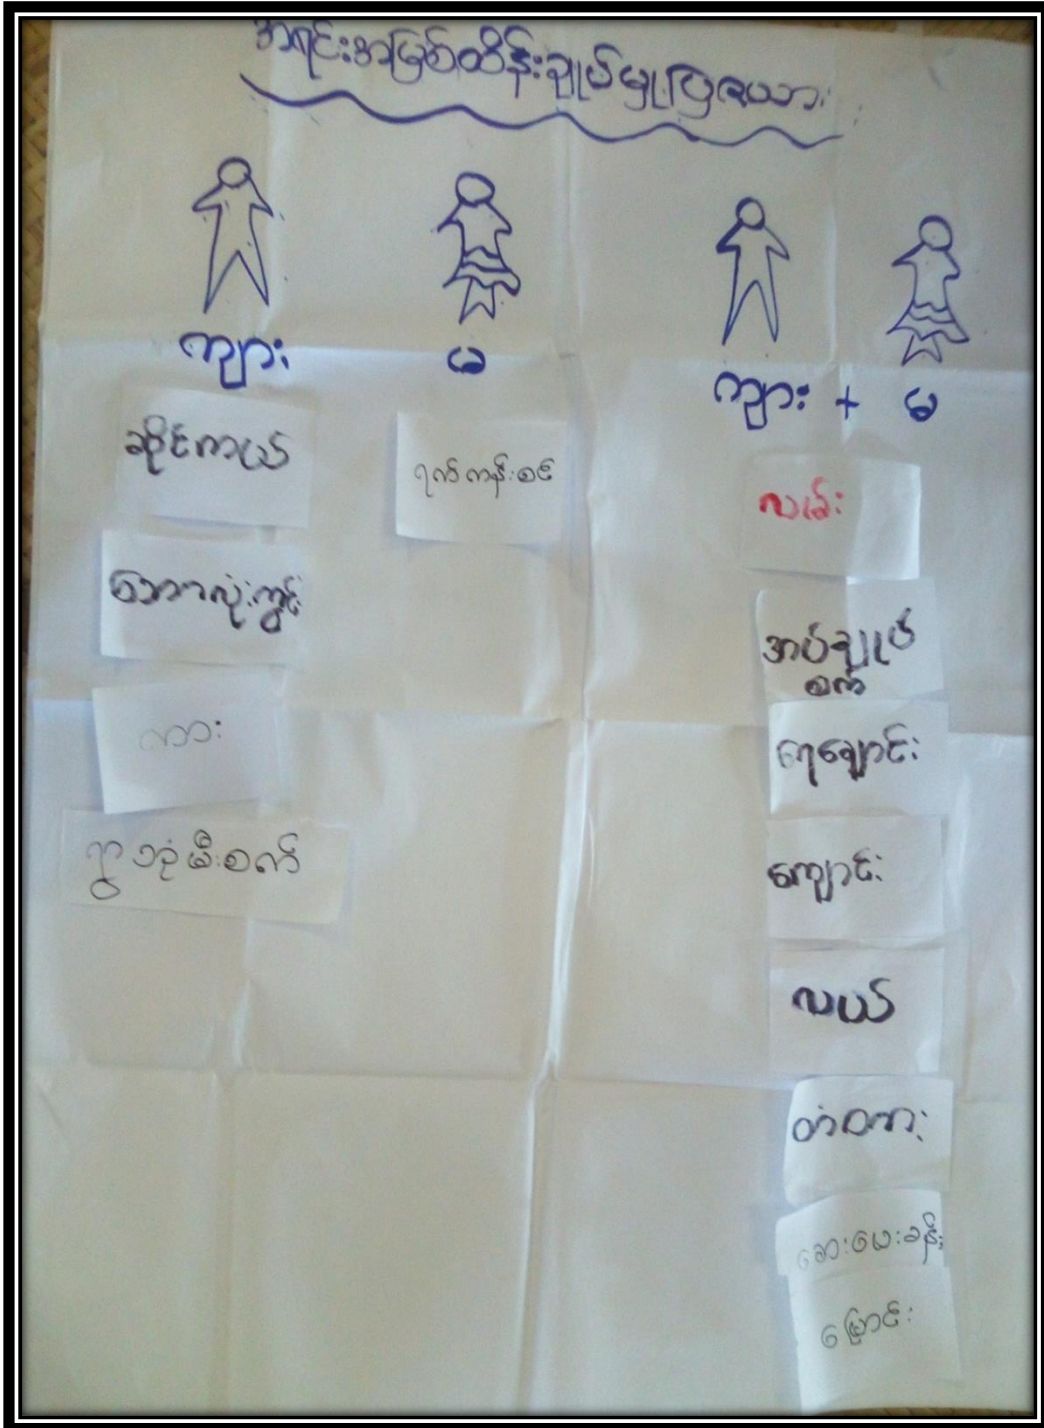 အရင်းအမြစ်ထိန်းချုပ်မှုပြဇယား
ကျား
မ
ကျား + မ
ဆိုင်ကယ်
ဘောလုံးကွင်း
ကား
ရွာဘုံမီးစက်
ရက်ကန်းစင်
လမ်း
အပ်ချုပ်
စက်
ရေချောင်း
ကျောင်း
လယ်
တံတား
ဆေးပေးခန်း
မြောင်း